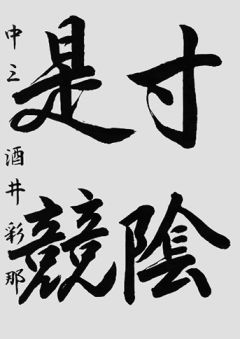 寸陰
是競
中三 酒井彩那